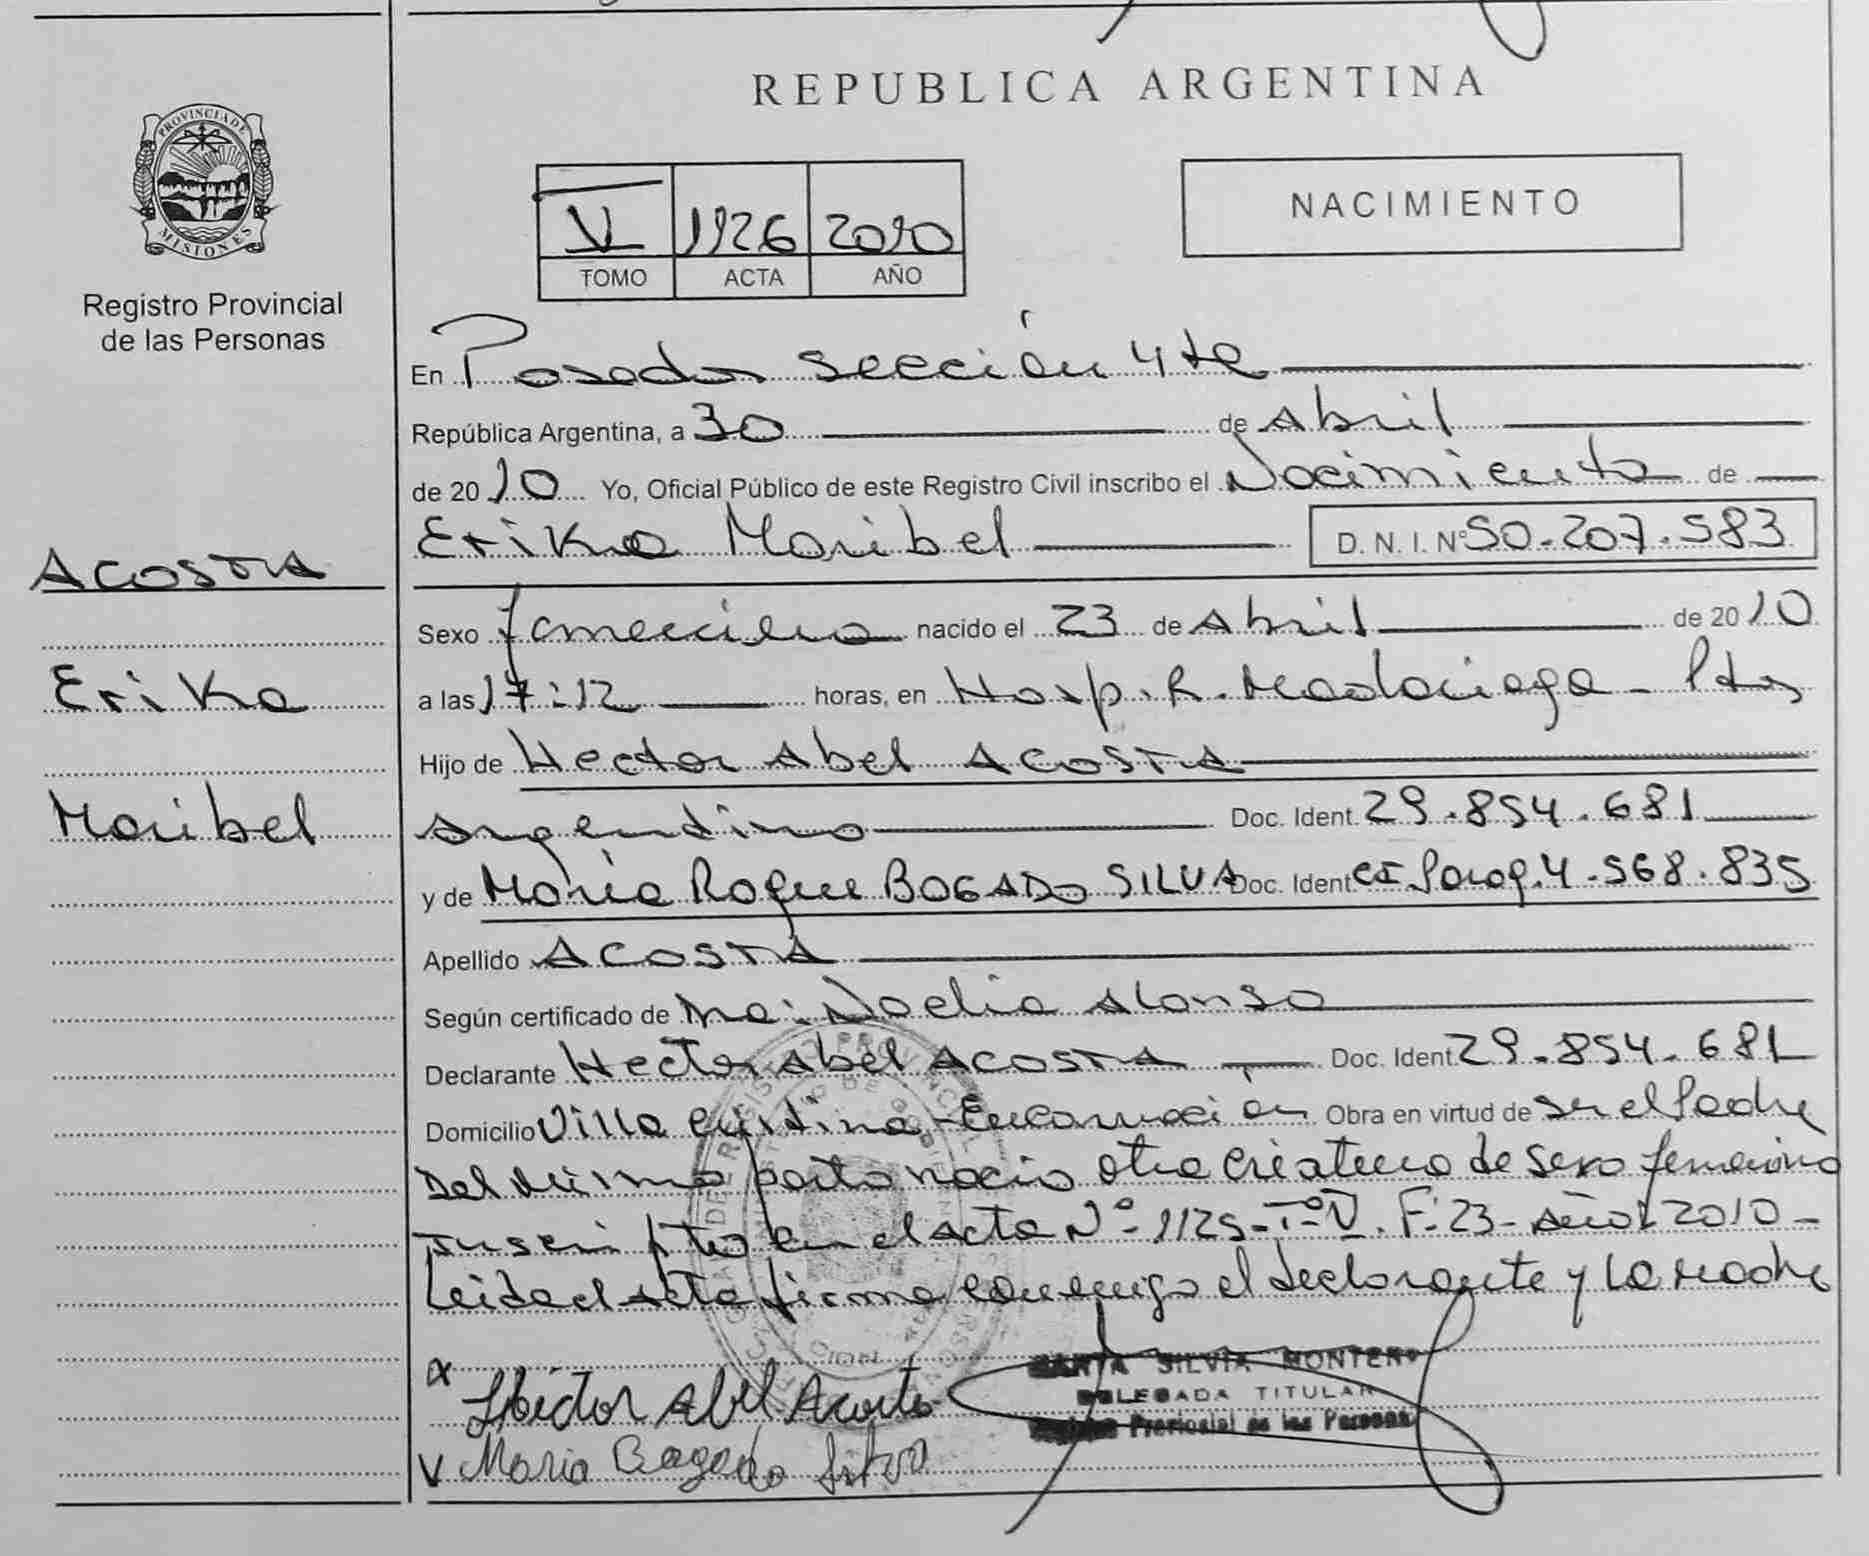 REPUBLICA ARGENTINA
PROVINCIA DE
MISIONES
Registro Provincial
de las Personas
V 1126 2010
TOMO ACTA AÑO
NACIMIENTO
En Posadas sección 4ta
República Argentina, a 30 de Abril
de 2010 Yo, Oficial Público de este Registro Civil inscribo el Nacimiento de
Erika Maribel D. N. I. Nº 50.207.583
ACOSTA
Erika
Maribel
Sexo femenino nacido el 23 de Abril de 2010
a las 17:12 horas, en Hosp. R. Madariaga - Pdas
Hijo de Hector Abel ACOSTA
argentino Doc. Ident. 29.854.681
y de María Roque BOGADO SILVA Doc. Ident CI Parag. 4.568.835
Apellido ACOSTA
Según certificado de Ma: Noelia Alonso
Declarante Hector Abel ACOSTA Doc. Ident. 29.854.681
Domicilio Villa Cristina - Encarnación Obra en virtud de ser el Padre
Del mismo parto nacio otra criatura de sexo femenino
inscripta en el acta Nº 1125 - Tº V. F: 23 - Año 2010 -
Leida el Acta firma conmigo el declarante y La madre
x Hector Abel Acosta
V Maria Bogado Silva
SILVIA MONTERO
DELEGADA TITULAR
Provincial de las Personas